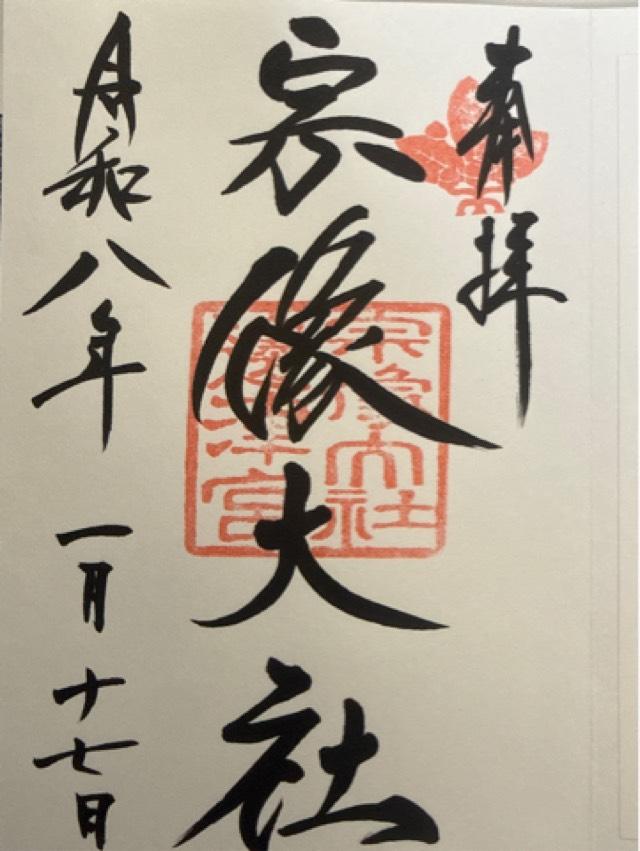 奉拝
宗像大社
宗像大社
邊津宮
令和八年 一月 十七日